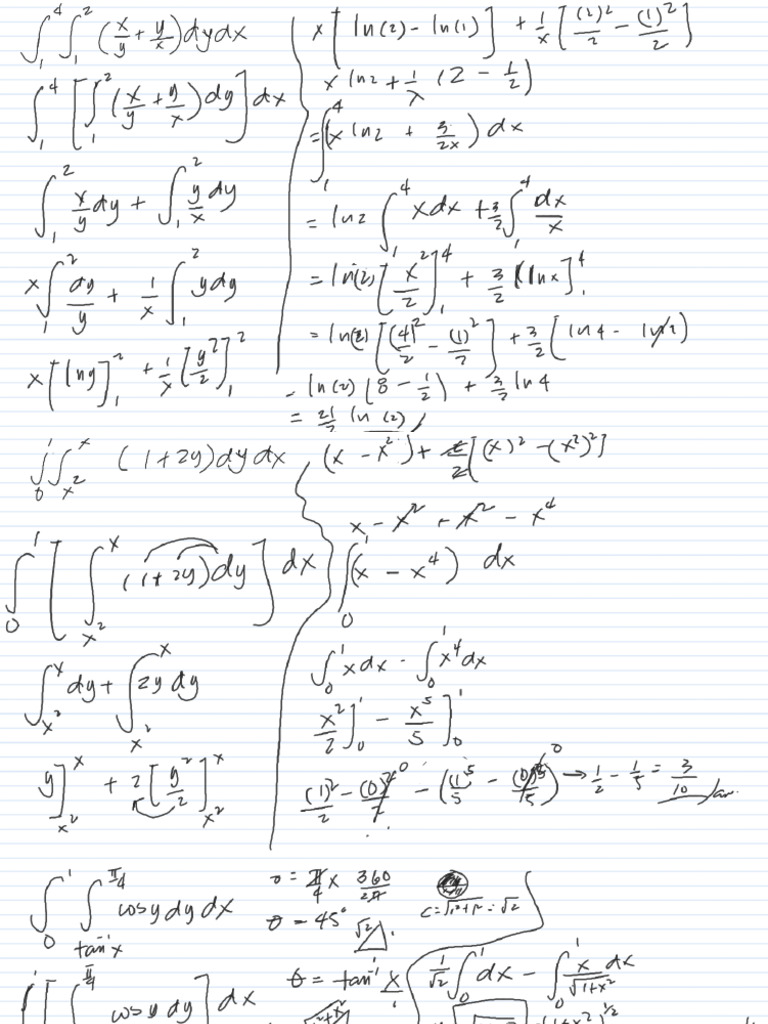 ∫₁⁴ ∫₁² (x/y + y/x) dy dx
∫₁⁴ [∫₁² (x/y + y/x) dy] dx
∫₁² x/y dy + ∫₁² y/x dy
x ∫₁² dy/y + 1/x ∫₁² y dy
x [ln y]₁² + 1/x [y²/2]₁²
x [ln(2) - ln(1)] + 1/x [(2)²/2 - (1)²/2]
x ln2 + 1/x (2 - 1/2)
= ∫₁⁴ (x ln2 + 3/2x) dx
= ln2 ∫₁⁴ x dx + 3/2 ∫₁⁴ dx/x
= ln(2) [x²/2]₁⁴ + 3/2 [ln x]₁⁴
= ln(2) [(4)²/2 - (1)²/2] + 3/2 [ln 4 - ln 1]
= ln(2) (8 - 1/2) + 3/2 ln 4
= 21/2 ln(2)
∫₀¹ ∫ₓ²ˣ (1+2y) dy dx
∫₀¹ [∫ₓ²ˣ (1+2y) dy] dx
∫ₓ²ˣ dy + ∫ₓ²ˣ 2y dy
y]ₓ²ˣ + 2 [y²/2]ₓ²ˣ
(x - x²) + 2/2 [(x)² - (x²)²]
x - x² + x² - x⁴
∫₀¹ (x - x⁴) dx
∫₀¹ x dx - ∫₀¹ x⁴ dx
x²/2]₀¹ - x⁵/5]₀¹
(1)²/2 - (0)²/2 - ((1)⁵/5 - (0)⁵/5) → 1/2 - 1/5 = 3/10
∫₀¹ ∫_{tan⁻¹x}^{π/4} cos y dy dx
∫₀¹ [∫^{π/4} cos y dy] dx
θ = π/4 x 360/2π
θ = 45°
√2 1
c = √1²+1² = √2
θ = tan⁻¹ x/1
1/√2 ∫₀¹ dx - ∫₀¹ x/√1+x² dx
(1+x²)^{1/2}